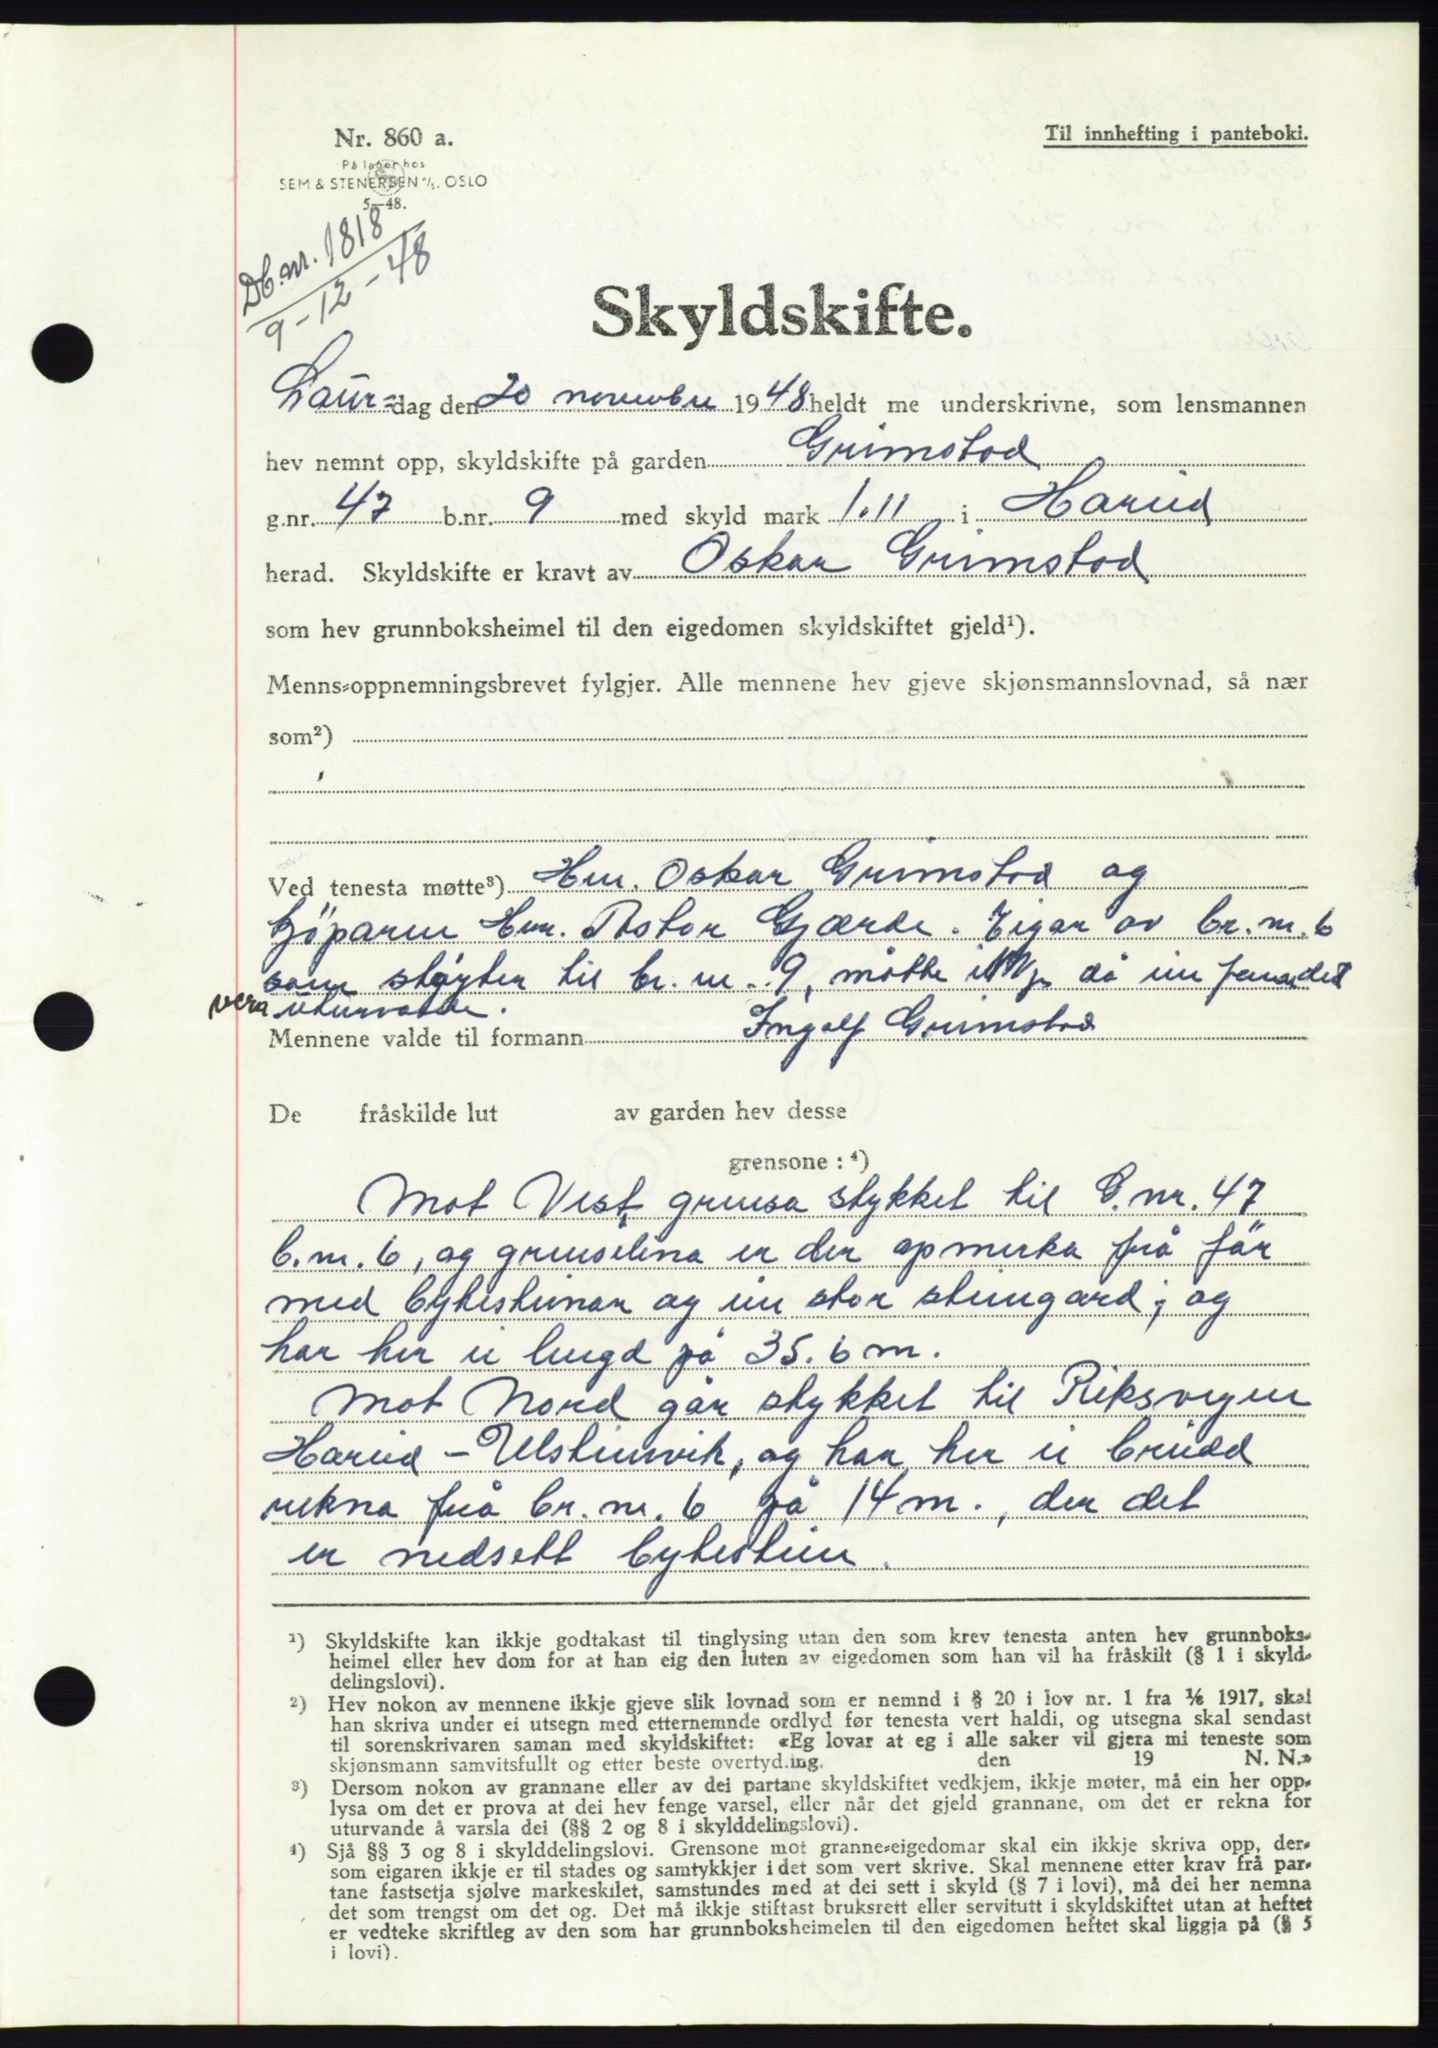 Nr. 860 a.
Til innhefting i panteboki.
På lager hos
SEM & STENERSEN A/S, OSLO
5—48.
Db.nr. 1818
9-12-48
Skyldskifte.
Laur-dag den 20 novembre 1948 heldt me underskrivne, som lensmannen
hev nemnt opp, skyldskifte på garden Grimstad
g.nr. 47 b.nr. 9 med skyld mark 1.11 i Hareid
herad. Skyldskifte er kravt av Oskar Grimstad
som hev grunnboksheimel til den eigedomen skyldskiftet gjeld¹).
Menns-oppnemningsbrevet fylgjer. Alle mennene hev gjeve skjønsmannslovnad, så nær
som²)
Ved tenesta møtte³) Hrr. Oskar Grimstad og
kjöparen Hrr. Astor Gjærde. Eigar av br.nr. 6
som støyter til br. nr. 9, møtte ikkje då ein fann det
vera uturvande.
Mennene valde til formann Ingolf Grimstad
De fråskilde lut av garden hev desse
grensone : ⁴)
Mot Vest grensa stykket til G.nr. 47
b.nr. 6, og grenselina er der opmerka frå för
med bytesteinar og ein stor steingard; og
har her ei lengd på 35.6 m.
Mot Nord går stykket til Riksvegen
Hareid – Ulsteinvik, og har her ei breidd
rekna frå br. nr. 6 på 14 m., der det
er nedsett bytestein.
¹) Skyldskifte kan ikkje godtakast til tinglysing utan den som krev tenesta anten hev grunnboks-
heimel eller hev dom for at han eig den luten av eigedomen som han vil ha fråskilt (§ 1 i skyld-
delingslovi).
²) Hev nokon av mennene ikkje gjeve slik lovnad som er nemnd i § 20 i lov nr. 1 fra ¹/₆ 1917, skal
han skriva under ei utsegn med etternemnde ordlyd før tenesta vert haldi, og utsegna skal sendast
til sorenskrivaren saman med skyldskiftet: «Eg lovar at eg i alle saker vil gjera mi teneste som
skjønsmann samvitsfullt og etter beste overtyding. den 19 N. N.»
³) Dersom nokon av grannane eller av dei partane skyldskiftet vedkjem, ikkje møter, må ein her opp-
lysa om det er prova at dei hev fenge varsel, eller når det gjeld grannane, om det er rekna for
uturvande å varsla dei (§§ 2 og 8 i skylddelingslovi).
⁴) Sjå §§ 3 og 8 i skylddelingslovi. Grensone mot granne-eigedomar skal ein ikkje skriva opp, der-
som eigaren ikkje er til stades og samtykkjer i det som vert skrive. Skal mennene etter krav frå par-
tane fastsetja sjølve markeskilet, samstundes med at dei sett i skyld (§ 7 i lovi), må dei her nemna
det som trengst om det og. Det må ikkje stiftast bruksrett eller servitutt i skyldskiftet utan at heftet
er vedteke skriftleg av den som har grunnboksheimelen til den eigedomen heftet skal liggja på (§ 5
i lovi).